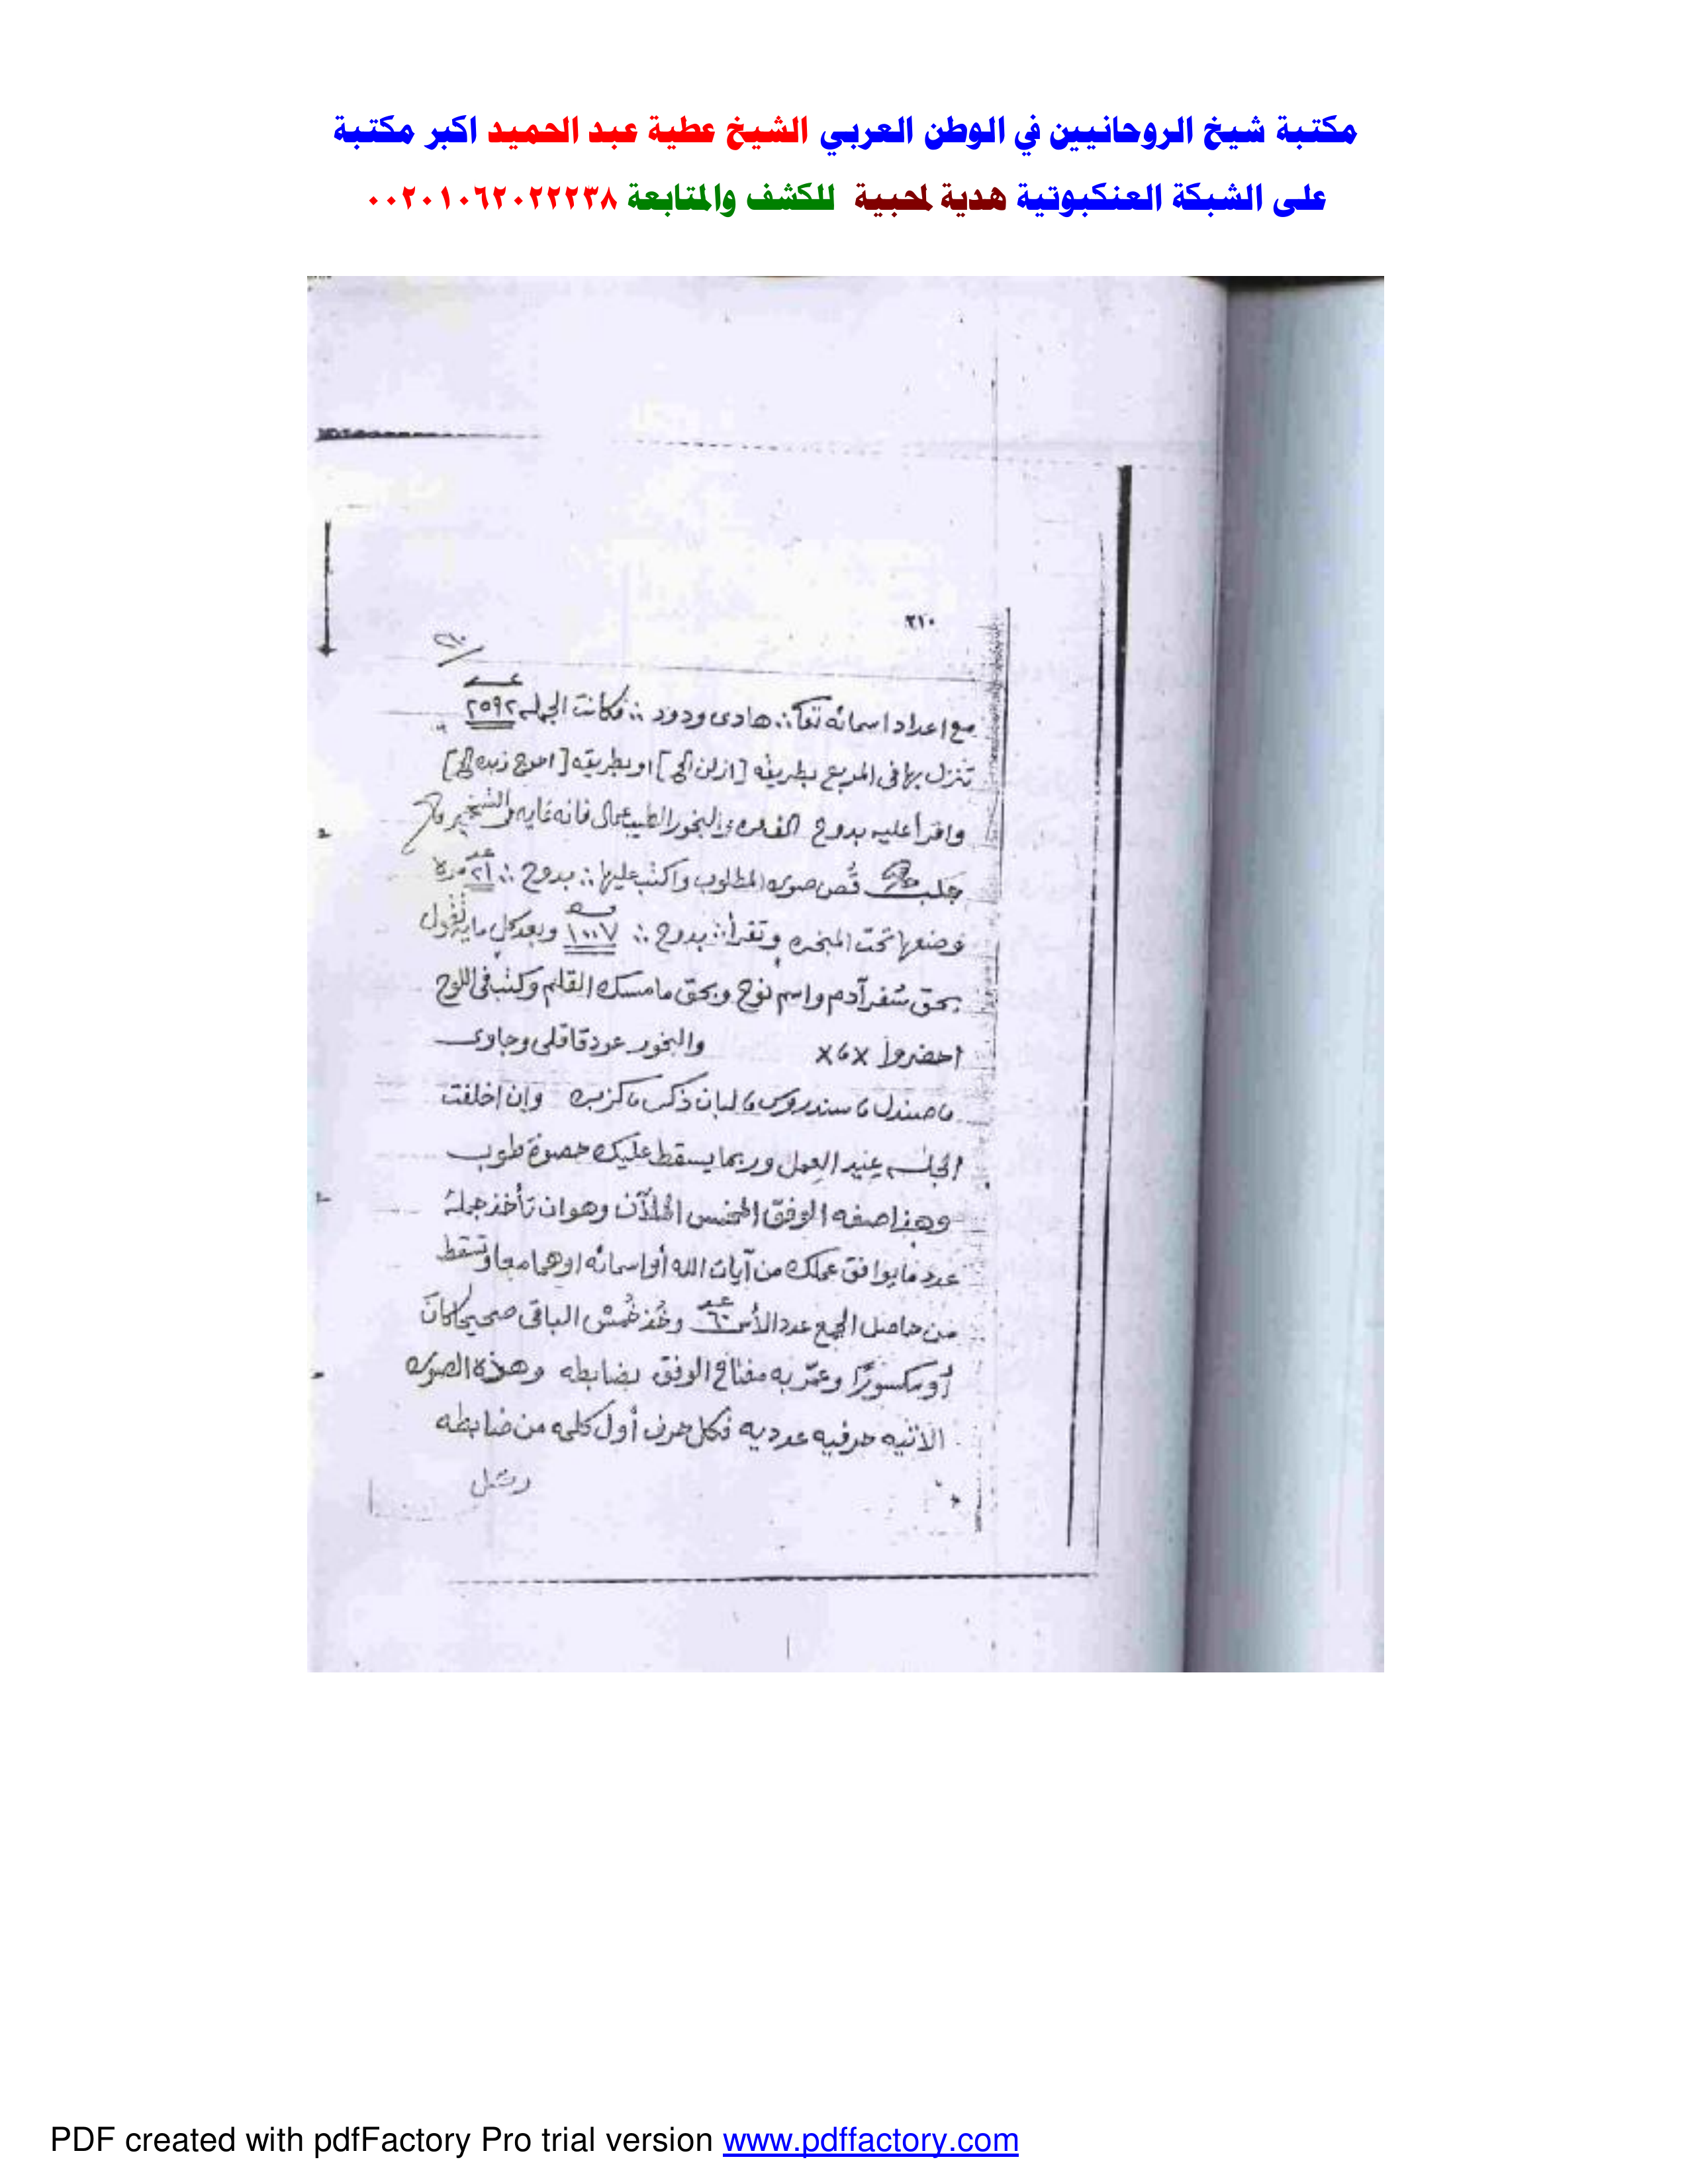 مكتبة شيخ الروحانيين في الوطن العربي الشيخ عطية عبد الحميد اكبر مكتبة
على الشبكة العنكبوتية هدية لمحبية للكشف والمتابعة ٠٠٢٠١٠٦٢٠٢٢٢٣٨
٢١٠
مع اعداد اسمائه تعا ∴ هادى ودود ∴ فكانت الجمله ٢٥٩٢
تنزل بها فى المربع بطريقه [ الى] او بطريقه [
واقرأ عليه بدوح والبخور الطيب عمال فانه غايه
جلب قُص صوره المطلوب واكتب عليها ∴ بدوح ∴ ٢١ مره
وضعها تحت المبخره وتقرأ ∴ بدوح ∴ ١٠٠٧ وبعد كل مايه تقول
بحق شفر آدم واسم نوح وبحق ما مسك القلم وكتب فى اللوح
احضروا x x والبخور عود قاقلى وجاوى
صندل سندروس لبان ذكر كزبره وإن اخلفت
الجلسه عيد العمل وربما يسقط عليك حصوة طوب
وهذا صفه الوفق المخمس الملآن وهو ان تأخذ جملة
عدد ما يوافق عملك من آيات الله أو اسمائه او هما معا وتسقط
من حاصل الجمع عدد الأس ٦٠ وخُذ خُمسْ الباقى صحيحا كان
أو مكسورًا وعمّر به مفتاح الوفق بضابطه وهذه الصوره
الاتيه حرفيه عدديه فكل حرف أول كلمه من ضابطه
PDF created with pdfFactory Pro trial version www.pdffactory.com